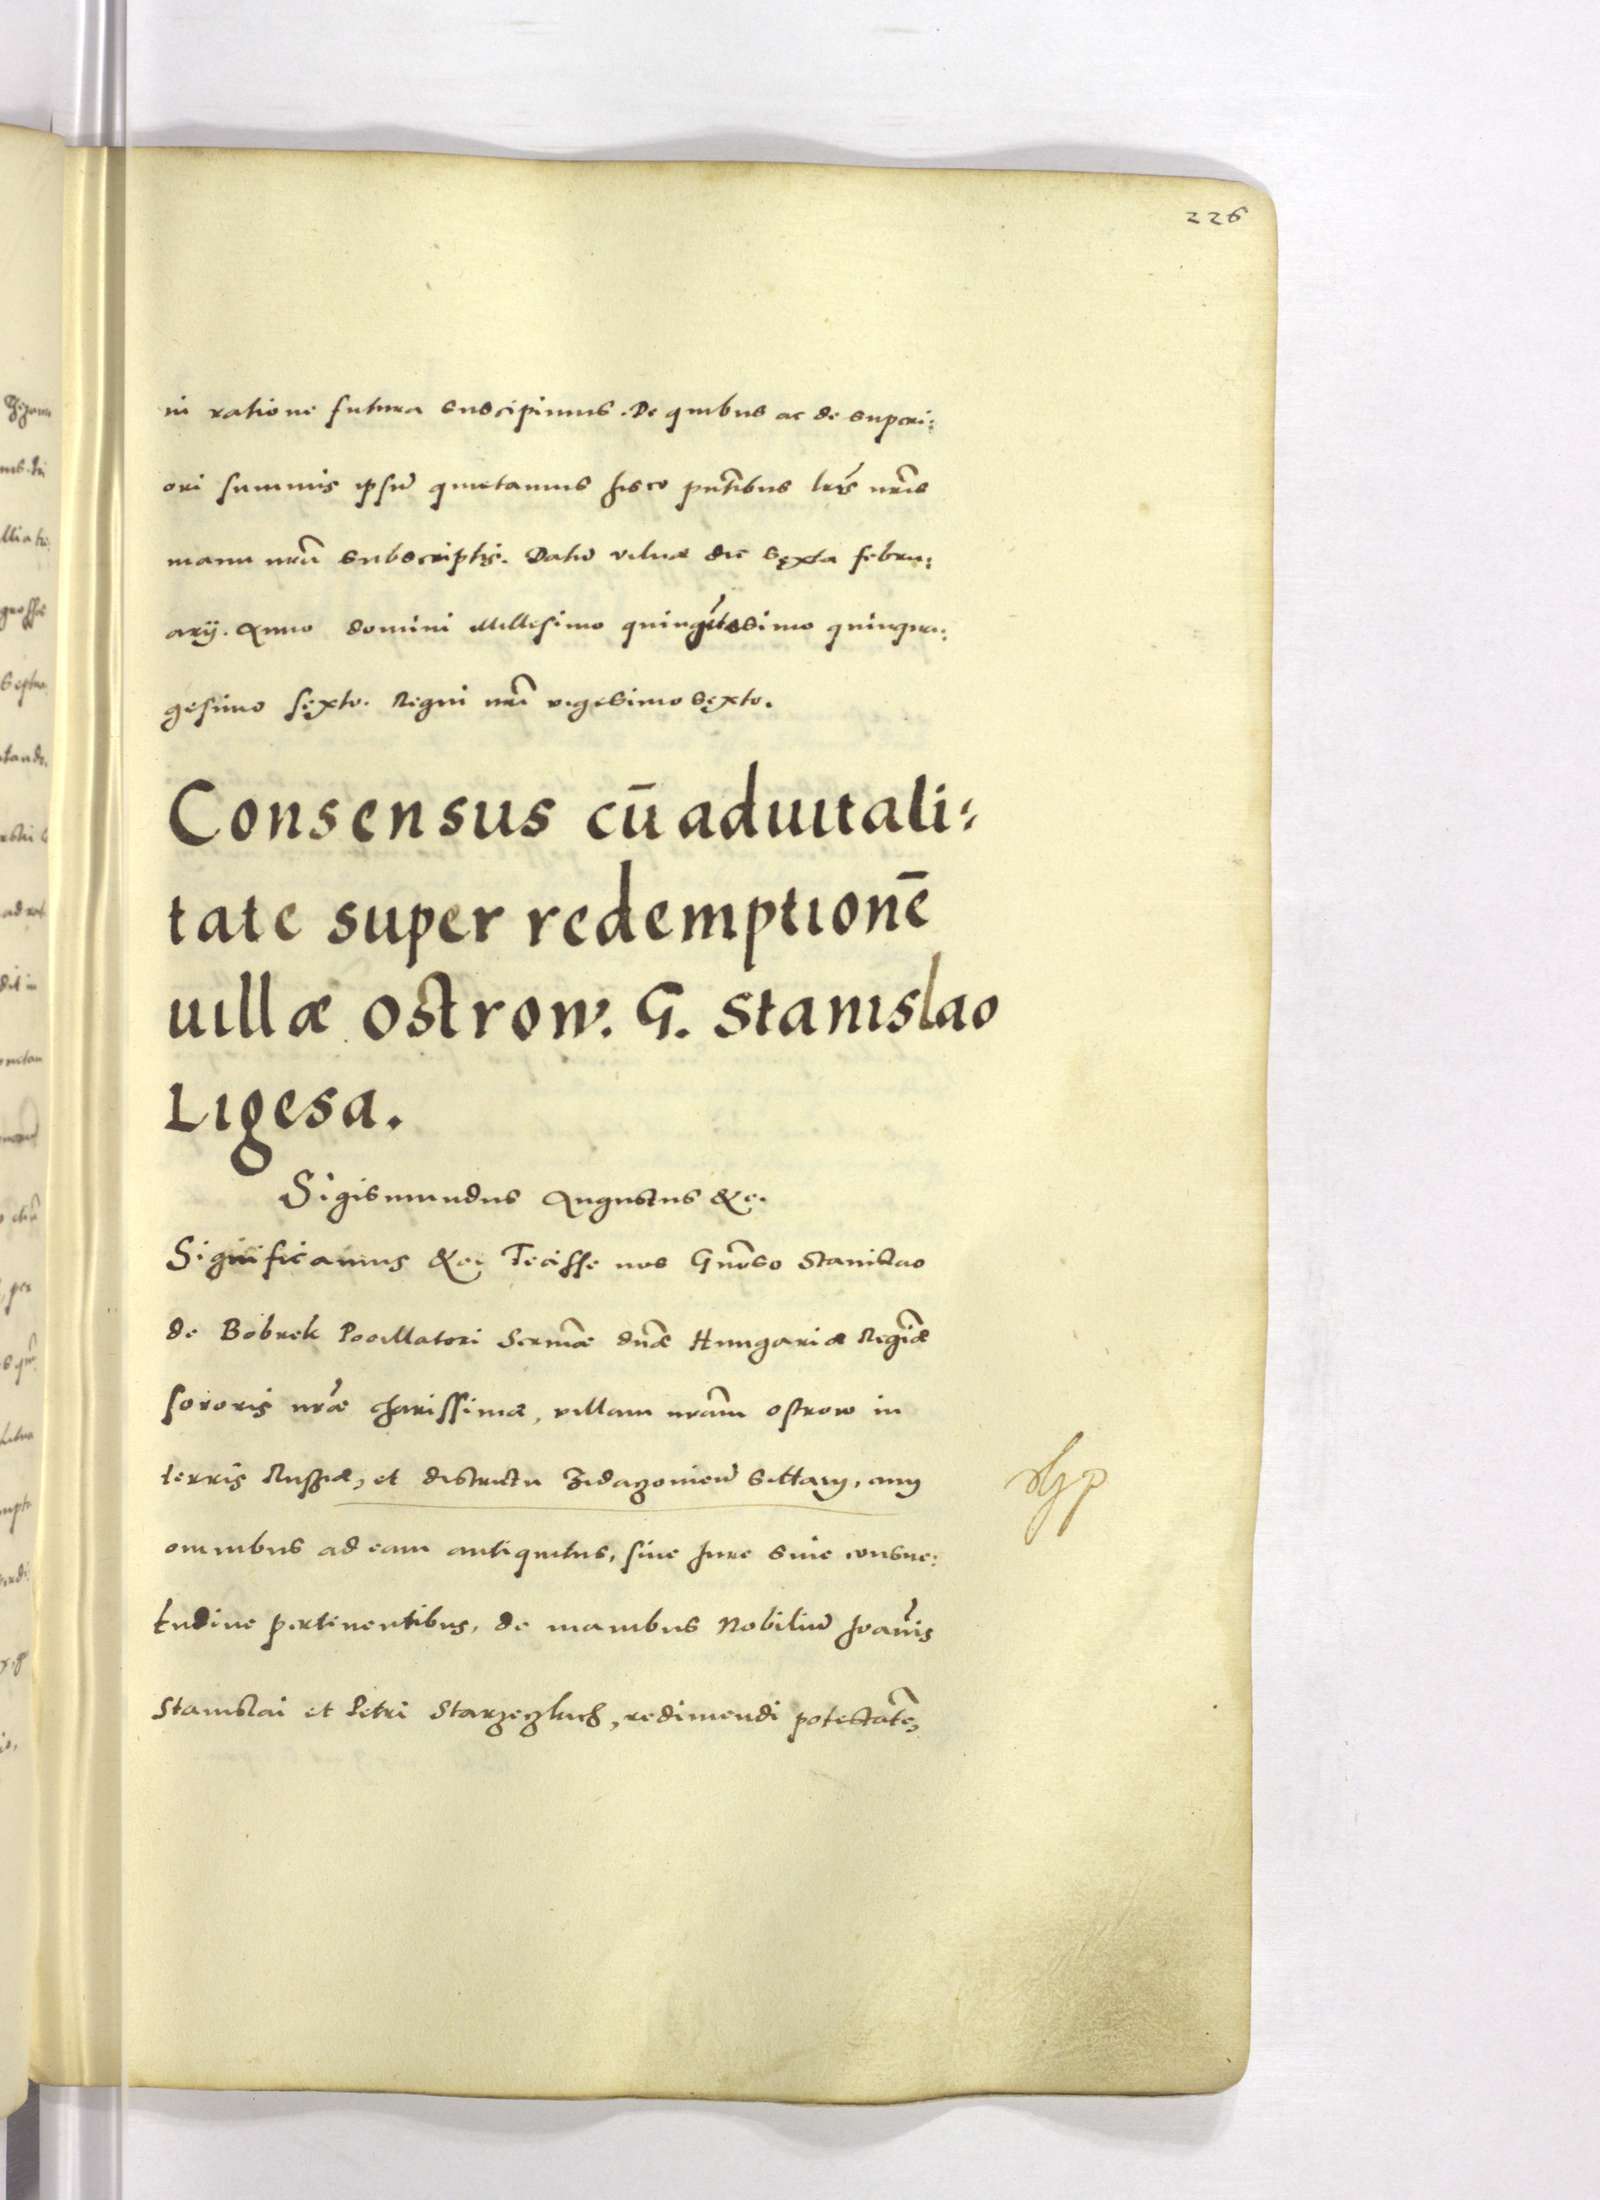 226
in ratione futura suscipimus. De quibus ac de superi:
ori summis ipsũ quietamus hisce pntĩbus lrĩs nrĩs
manu nrã subscriptis. Datũ vilnæ die sęxta febru:
arij. Anno domini Millesimo quingẽtesimo quinqua:
gesimo sęxto. Regni nrĩ vigesimo sęxto.
Consensus cū aduitali:
tate super redemptionē
uillæ ostrow. G. Stanislao
Ligesa.
Sigismundus Augustus &c.
Significamus &c. Fecisse nos Gnõso Stanislao
de Bobrek Pocillatori Sermæ dnæ Hungariæ Regiæ
sororis nræ charissimæ, villam nram ostrow in
terris Russiæ, et districtu sittam, cum
omnibus ad eam antiquitus, siue Jure siue consue:
tudine pertinentibus, de manibus Nobiliũ Joanĩs
Stanislai et Petri redimendi potestatẽ,